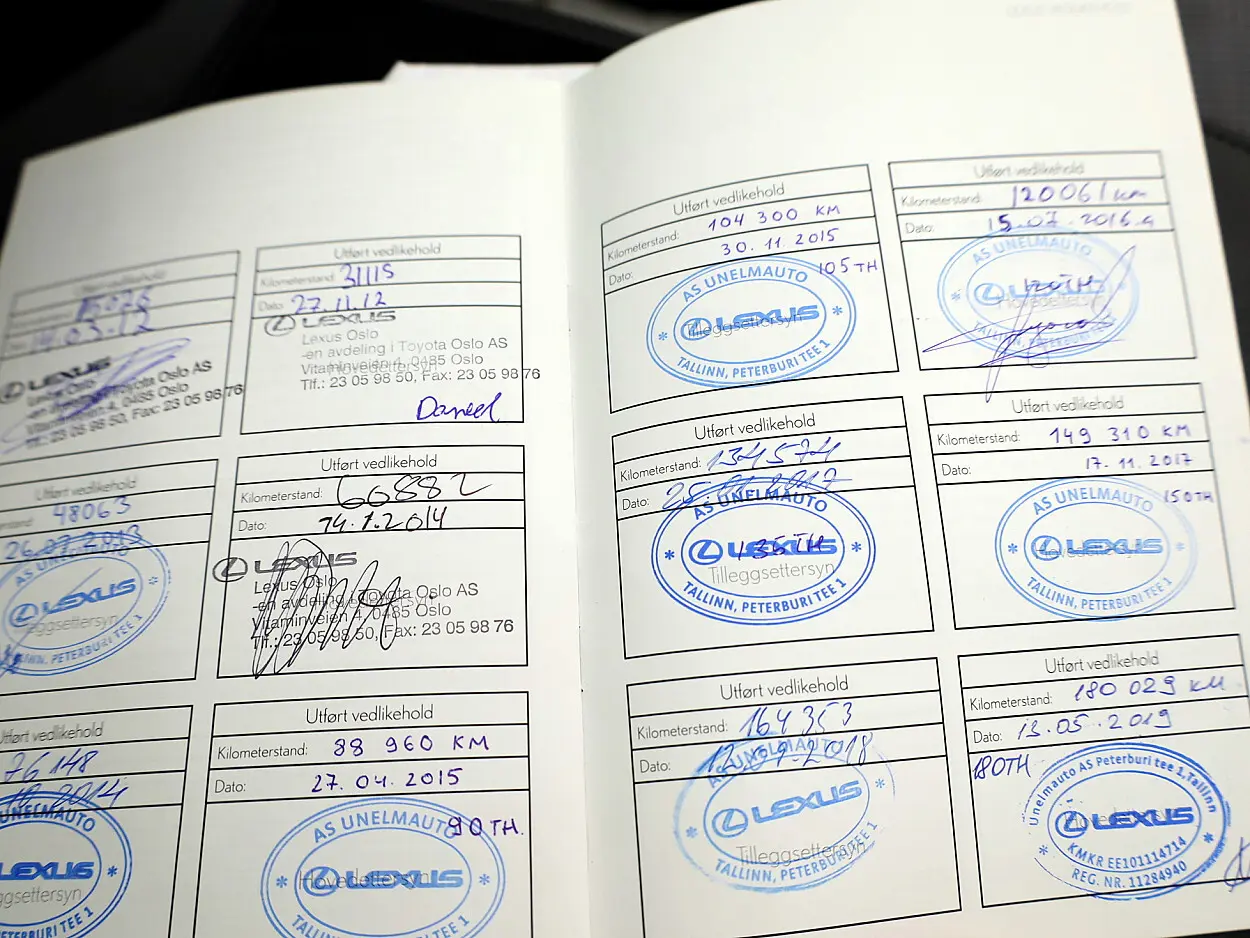 Utført vedlikehold
15076
14.03.12
LEXUS
Lexus Oslo
-en avdeling i Toyota Oslo AS
Vitaminveien 4, 0485 Oslo
Tlf.: 23 05 98 50, Fax: 23 05 98 76
Utført vedlikehold
Kilometerstand: 31115
Dato: 27.11.12
LEXUS
Lexus Oslo
-en avdeling i Toyota Oslo AS
Vitaminveien 4, 0485 Oslo
Hovedettersyn
Tlf.: 23 05 98 50, Fax: 23 05 98 76
Daniel
Utført vedlikehold
48063
26.07.2013
AS UNELMAUTO
LEXUS
Tilleggsettersyn
TALLINN, PETERBURI TEE 1
Utført vedlikehold
Kilometerstand: 66882
Dato: 14.1.2014
LEXUS
Lexus Oslo
-en avdeling i Toyota Oslo AS
Vitaminveien 4, 0485 Oslo
Tlf.: 23 05 98 50, Fax: 23 05 98 76
Utført vedlikehold
76148
2014
UNELMAUTO
LEXUS
PETERBURI TEE 1
Utført vedlikehold
Kilometerstand: 88 960 KM
Dato: 27. 04. 2015
90 TH.
AS UNELMAUTO
Hovedettersyn
LEXUS
Utført vedlikehold
Kilometerstand: 104 300 KM
Dato: 30. 11. 2015
105 TH
AS UNELMAUTO
LEXUS
Tilleggsettersyn
TALLINN, PETERBURI TEE 1
Utført vedlikehold
Kilometerstand: 120061 km
Dato: 15.07.2016.a
AS UNELMAUTO
120TH
LEXUS
Hovedettersyn
TALLINN, PETERBURI TEE 1
Utført vedlikehold
Kilometerstand: 134574
Dato: 25.01.2017
AS UNELMAUTO
LEXUS
135TH
Tilleggsettersyn
TALLINN, PETERBURI TEE 1
Utført vedlikehold
Kilometerstand: 149 310 KM
Dato: 17. 11. 2017
150TH
AS UNELMAUTO
LEXUS
Hovedettersyn
TALLINN, PETERBURI TEE 1
Utført vedlikehold
Kilometerstand: 164353
Dato: 12.09.2018
AS UNELMAUTO
LEXUS
Tilleggsettersyn
TALLINN, PETERBURI TEE 1
Utført vedlikehold
Kilometerstand: 180 029 KM
Dato: 13.05.2019
180TH
Unelmauto AS Peterburi tee 1, Tallinn
LEXUS
KMKR EE101114714
REG. NR. 11284940